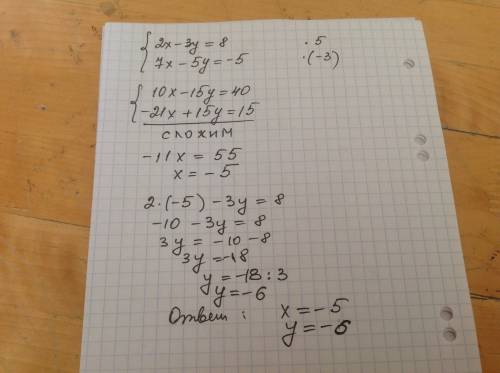 2x-3y=8 ·5
7x-5y=-5 ·(-3)
10x-15y=40
-21x+15y=15
сложим
-11x=55
x=-5
2·(-5)-3y=8
-10-3y=8
3y=-10-8
3y=-18
y=-18:3
y=-6
Ответ: x=-5
y=-6